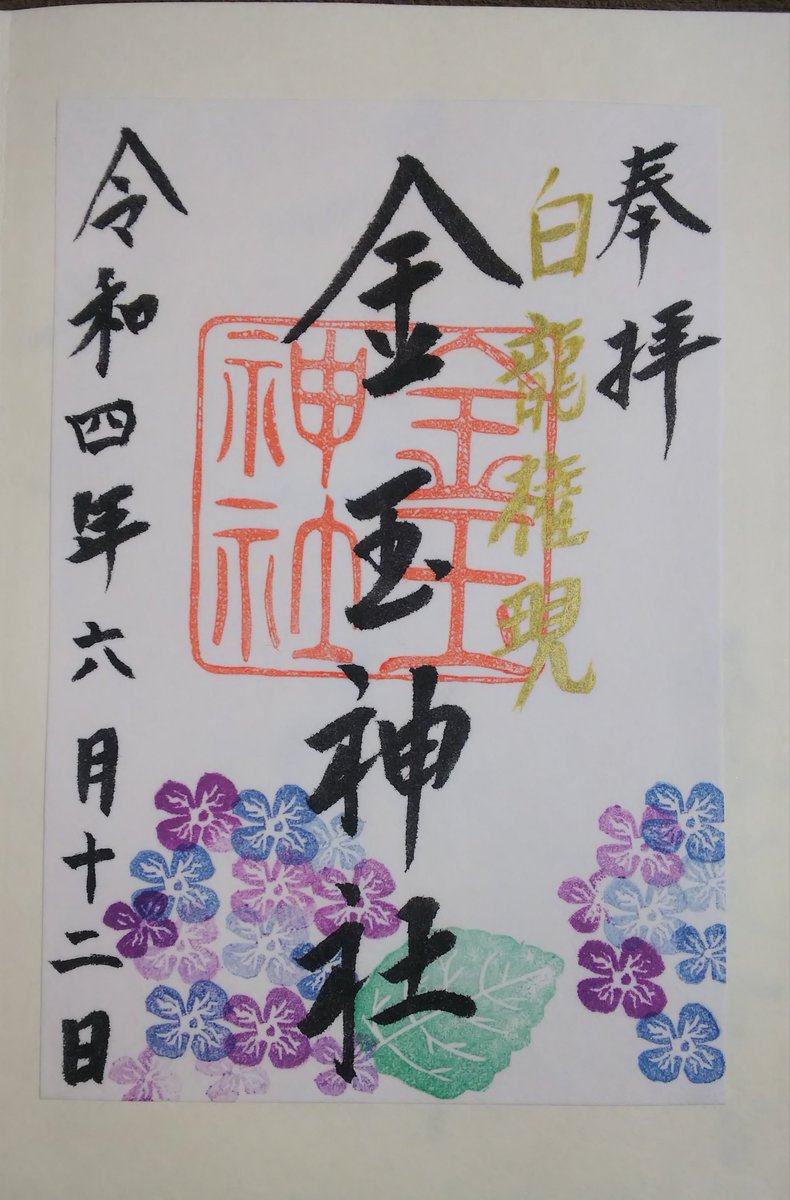 奉拝
白龍権現
金玉神社
金玉神社
令和四年六月十二日